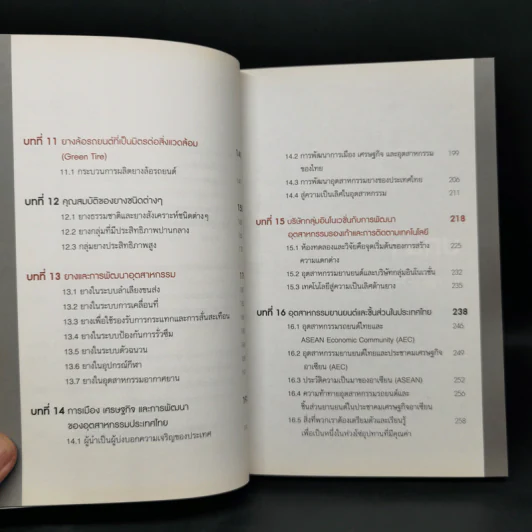 บทที่ 11 ยางล้อรถยนต์ที่เป็นมิตรต่อสิ่งแวดล้อม
(Green Tire)
11.1 กระบวนการผลิตยางล้อรถยนต์
บทที่ 12 คุณสมบัติของยางชนิดต่างๆ
12.1 ยางธรรมชาติและยางสังเคราะห์ชนิดต่างๆ
12.2 ยางกลุ่มที่มีประสิทธิภาพปานกลาง
12.3 กลุ่มยางประสิทธิภาพสูง
บทที่ 13 ยางและการพัฒนาอุตสาหกรรม
13.1 ยางในระบบลำเลียงขนส่ง
13.2 ยางในระบบการเคลื่อนที่
13.3 ยางเพื่อใช้รองรับการกระแทกและการสั่นสะเทือน
13.4 ยางในระบบป้องกันการรั่วซึม
13.5 ยางในระบบตัวฉนวน
13.6 ยางในอุปกรณ์กีฬา
13.7 ยางในอุตสาหกรรมอากาศยาน
บทที่ 14 การเมือง เศรษฐกิจ และการพัฒนา
ของอุตสาหกรรมประเทศไทย
14.1 ผู้นำเป็นผู้บ่งบอกความเจริญของประเทศ
14.2 การพัฒนาการเมือง เศรษฐกิจ และอุตสาหกรรม 199
ของไทย
14.3 การพัฒนาอุตสาหกรรมยางของประเทศไทย 206
14.4 สู่ความเป็นเลิศในอุตสาหกรรม 211
บทที่ 15 บริษัทกลุ่มอินโนเวชั่นกับการพัฒนา 218
อุตสาหกรรมรองเท้าและการติดตามเทคโนโลยี
15.1 ห้องทดลองและวิจัยคือจุดเริ่มต้นของการสร้าง 225
ความแตกต่าง
15.2 อุตสาหกรรมยานยนต์และบริษัทกลุ่มอินโนเวชั่น 232
15.3 เทคโนโลยีสู่ความเป็นเลิศด้านยาง 235
บทที่ 16 อุตสาหกรรมยานยนต์และชิ้นส่วนในประเทศไทย 238
16.1 อุตสาหกรรมรถยนต์ไทยและ 246
ASEAN Economic Community (AEC)
16.2 อุตสาหกรรมยานยนต์ไทยและประชาคมเศรษฐกิจ
อาเซียน (AEC)
16.3 ประวัติความเป็นมาของอาเซียน (ASEAN) 252
16.4 ความท้าทายอุตสาหกรรมรถยนต์และ 256
ชิ้นส่วนยานยนต์ในประชาคมเศรษฐกิจอาเซียน
16.5 สิ่งที่พวกเราต้องเตรียมตัวและเรียนรู้ 258
เพื่อเป็นหนึ่งในห่วงโซ่อุปทานที่มีคุณค่า